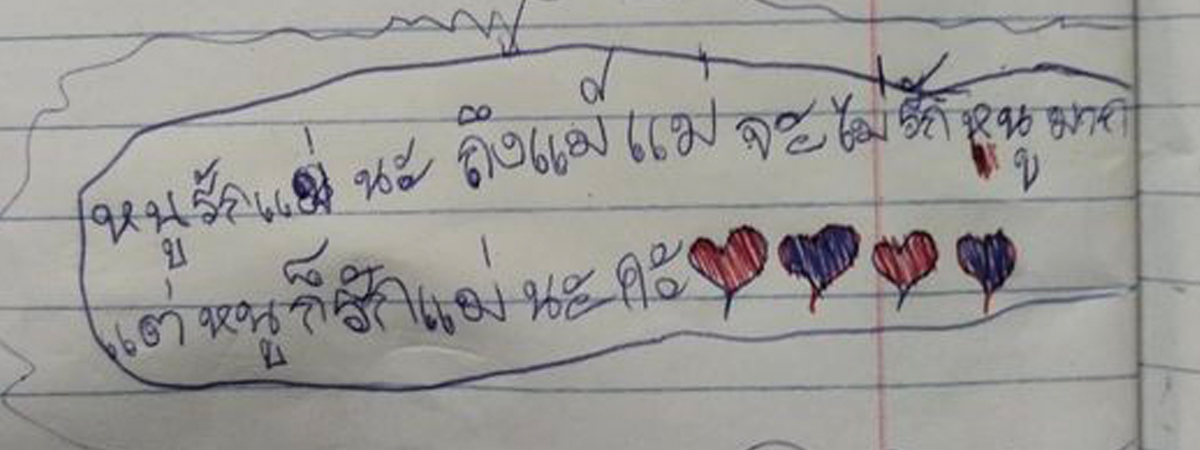 หนูรักแม่ นะ ถึงแม้แม่ จะไม่รักหนูมาก
แต่หนูก็รักแม่ นะคะ